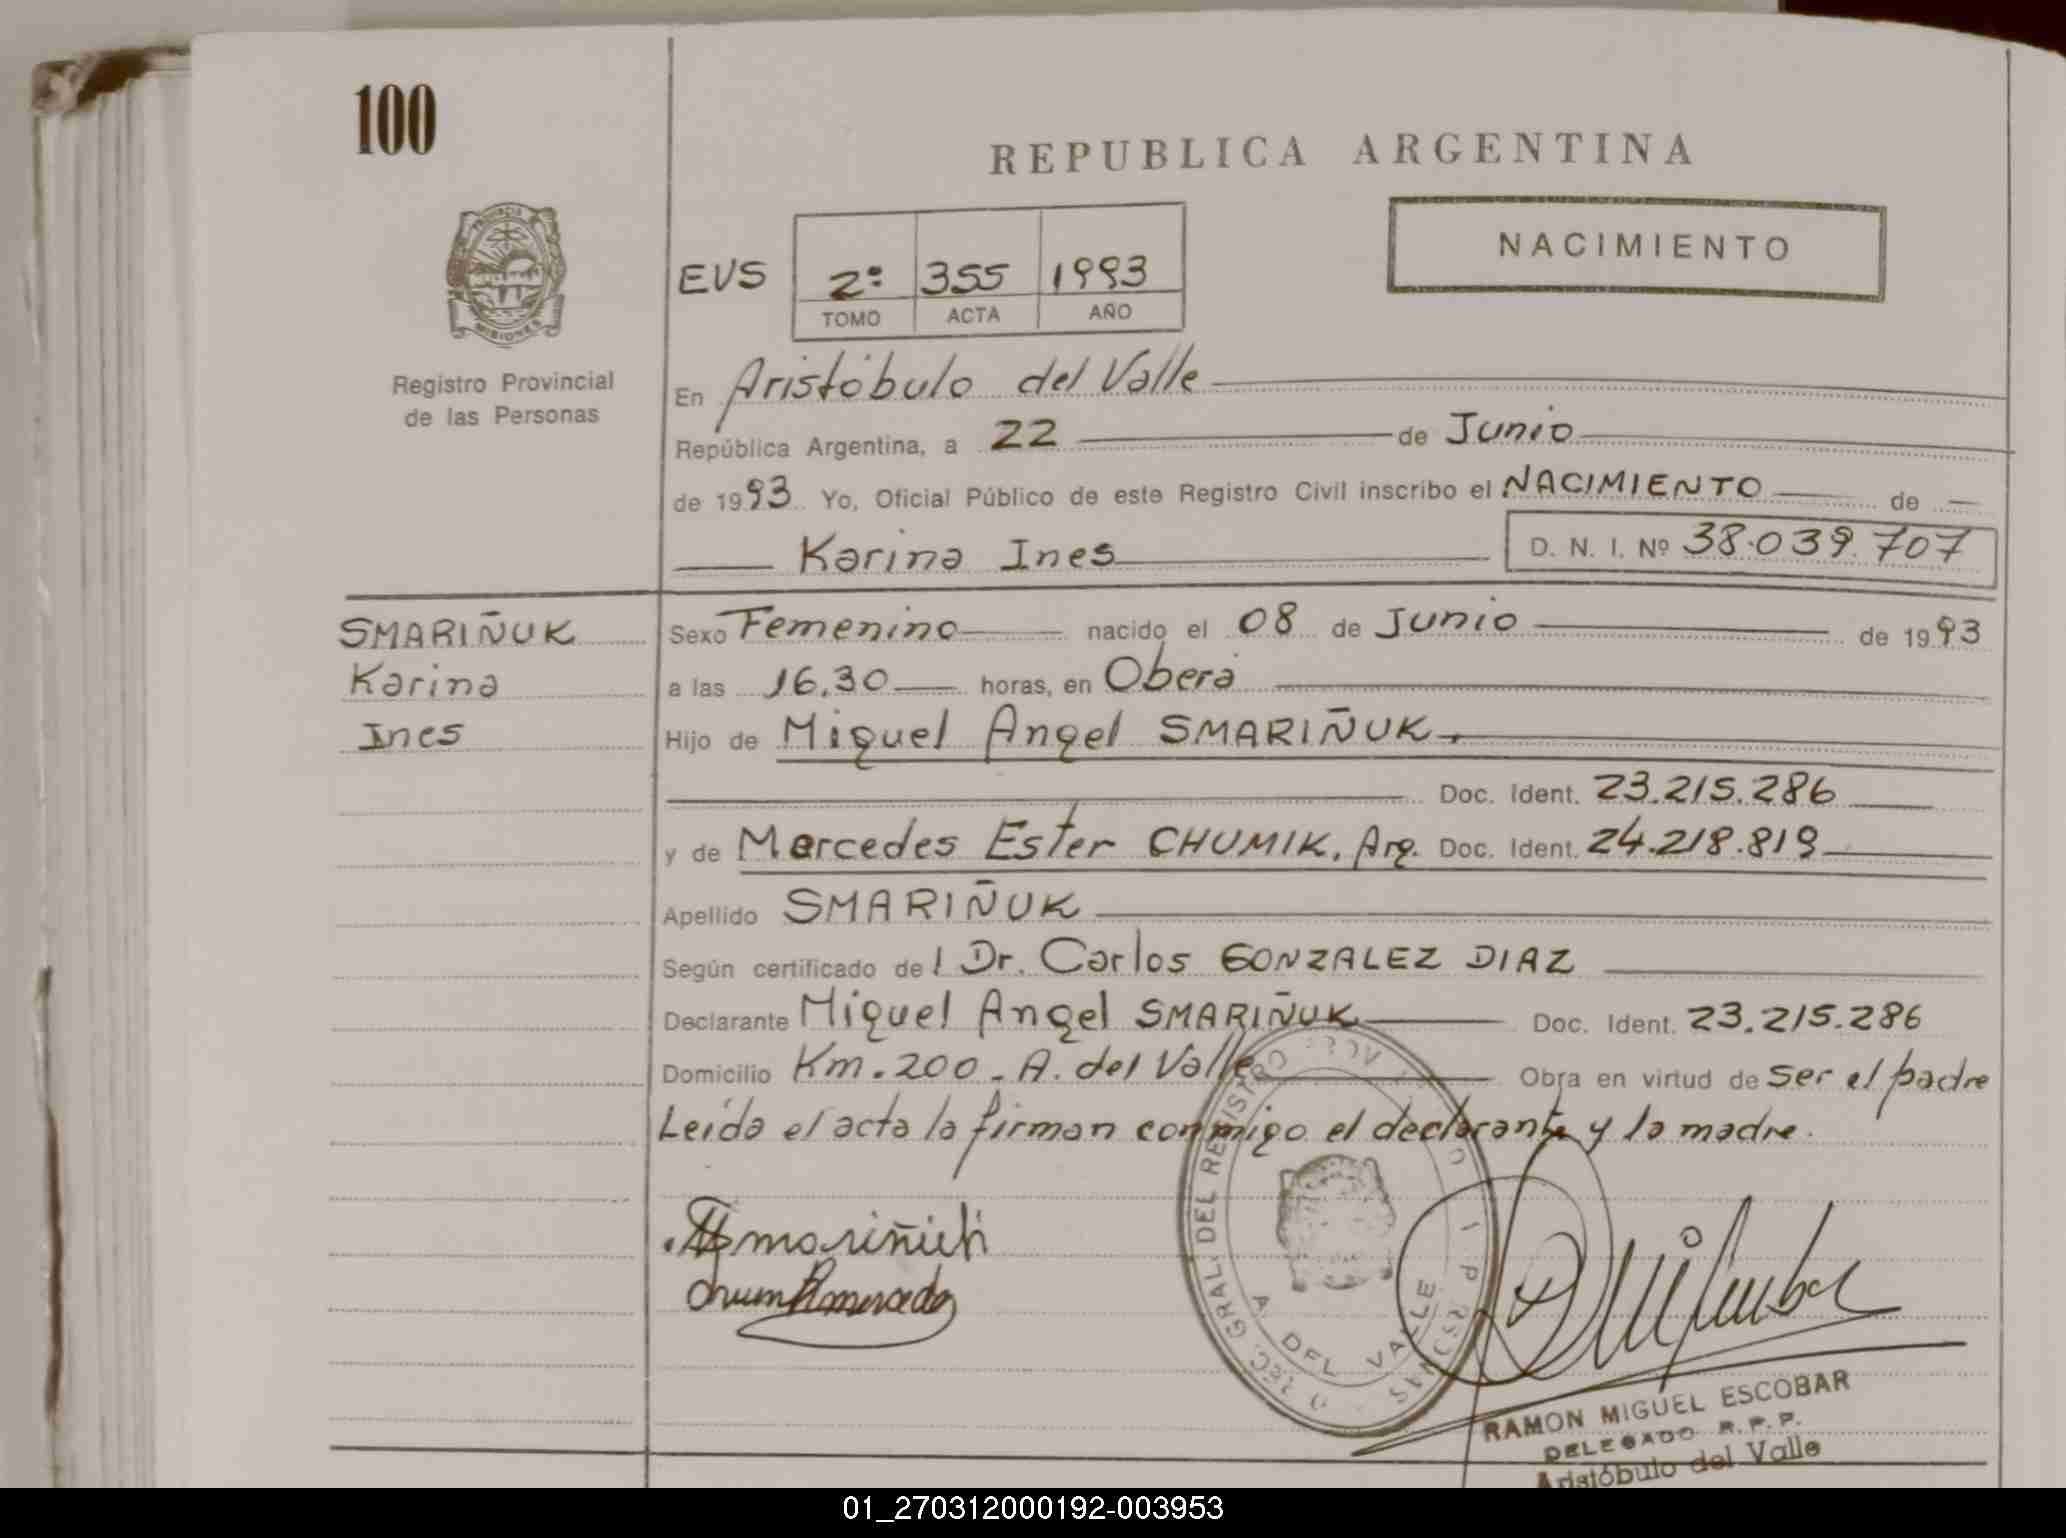 100
REPUBLICA ARGENTINA
PROVINCIA
MISIONES
NACIMIENTO
EVS 2º 355 1993
TOMO ACTA AÑO
Registro Provincial
de las Personas
En Aristóbulo del Valle
República Argentina, a 22 de Junio
de 1993 Yo, Oficial Público de este Registro Civil inscribo el NACIMIENTO de
Karina Ines D. N. I. Nº 38.039.707
SMARIÑUK
Karina
Ines
Sexo Femenino nacido el 08 de Junio de 1993
a las 16.30 horas, en Oberá
Hijo de Miguel Angel SMARIÑUK.
Doc. Ident. 23.215.286
y de Mercedes Ester CHUMIK, Arg. Doc. Ident. 24.218.819
Apellido SMARIÑUK
Según certificado del Dr. Carlos GONZALEZ DIAZ
Declarante Miguel Angel SMARIÑUK Doc. Ident. 23.215.286
Domicilio Km. 200 - A. del Valle Obra en virtud de ser el padre
Leída el acta la firman conmigo el declarante y la madre.
GRAL. DEL REGISTRO
A. DEL VALLE
RAMON MIGUEL ESCOBAR
DELEGADO R. P. P.
Aristóbulo del Valle
01_270312000192-003953